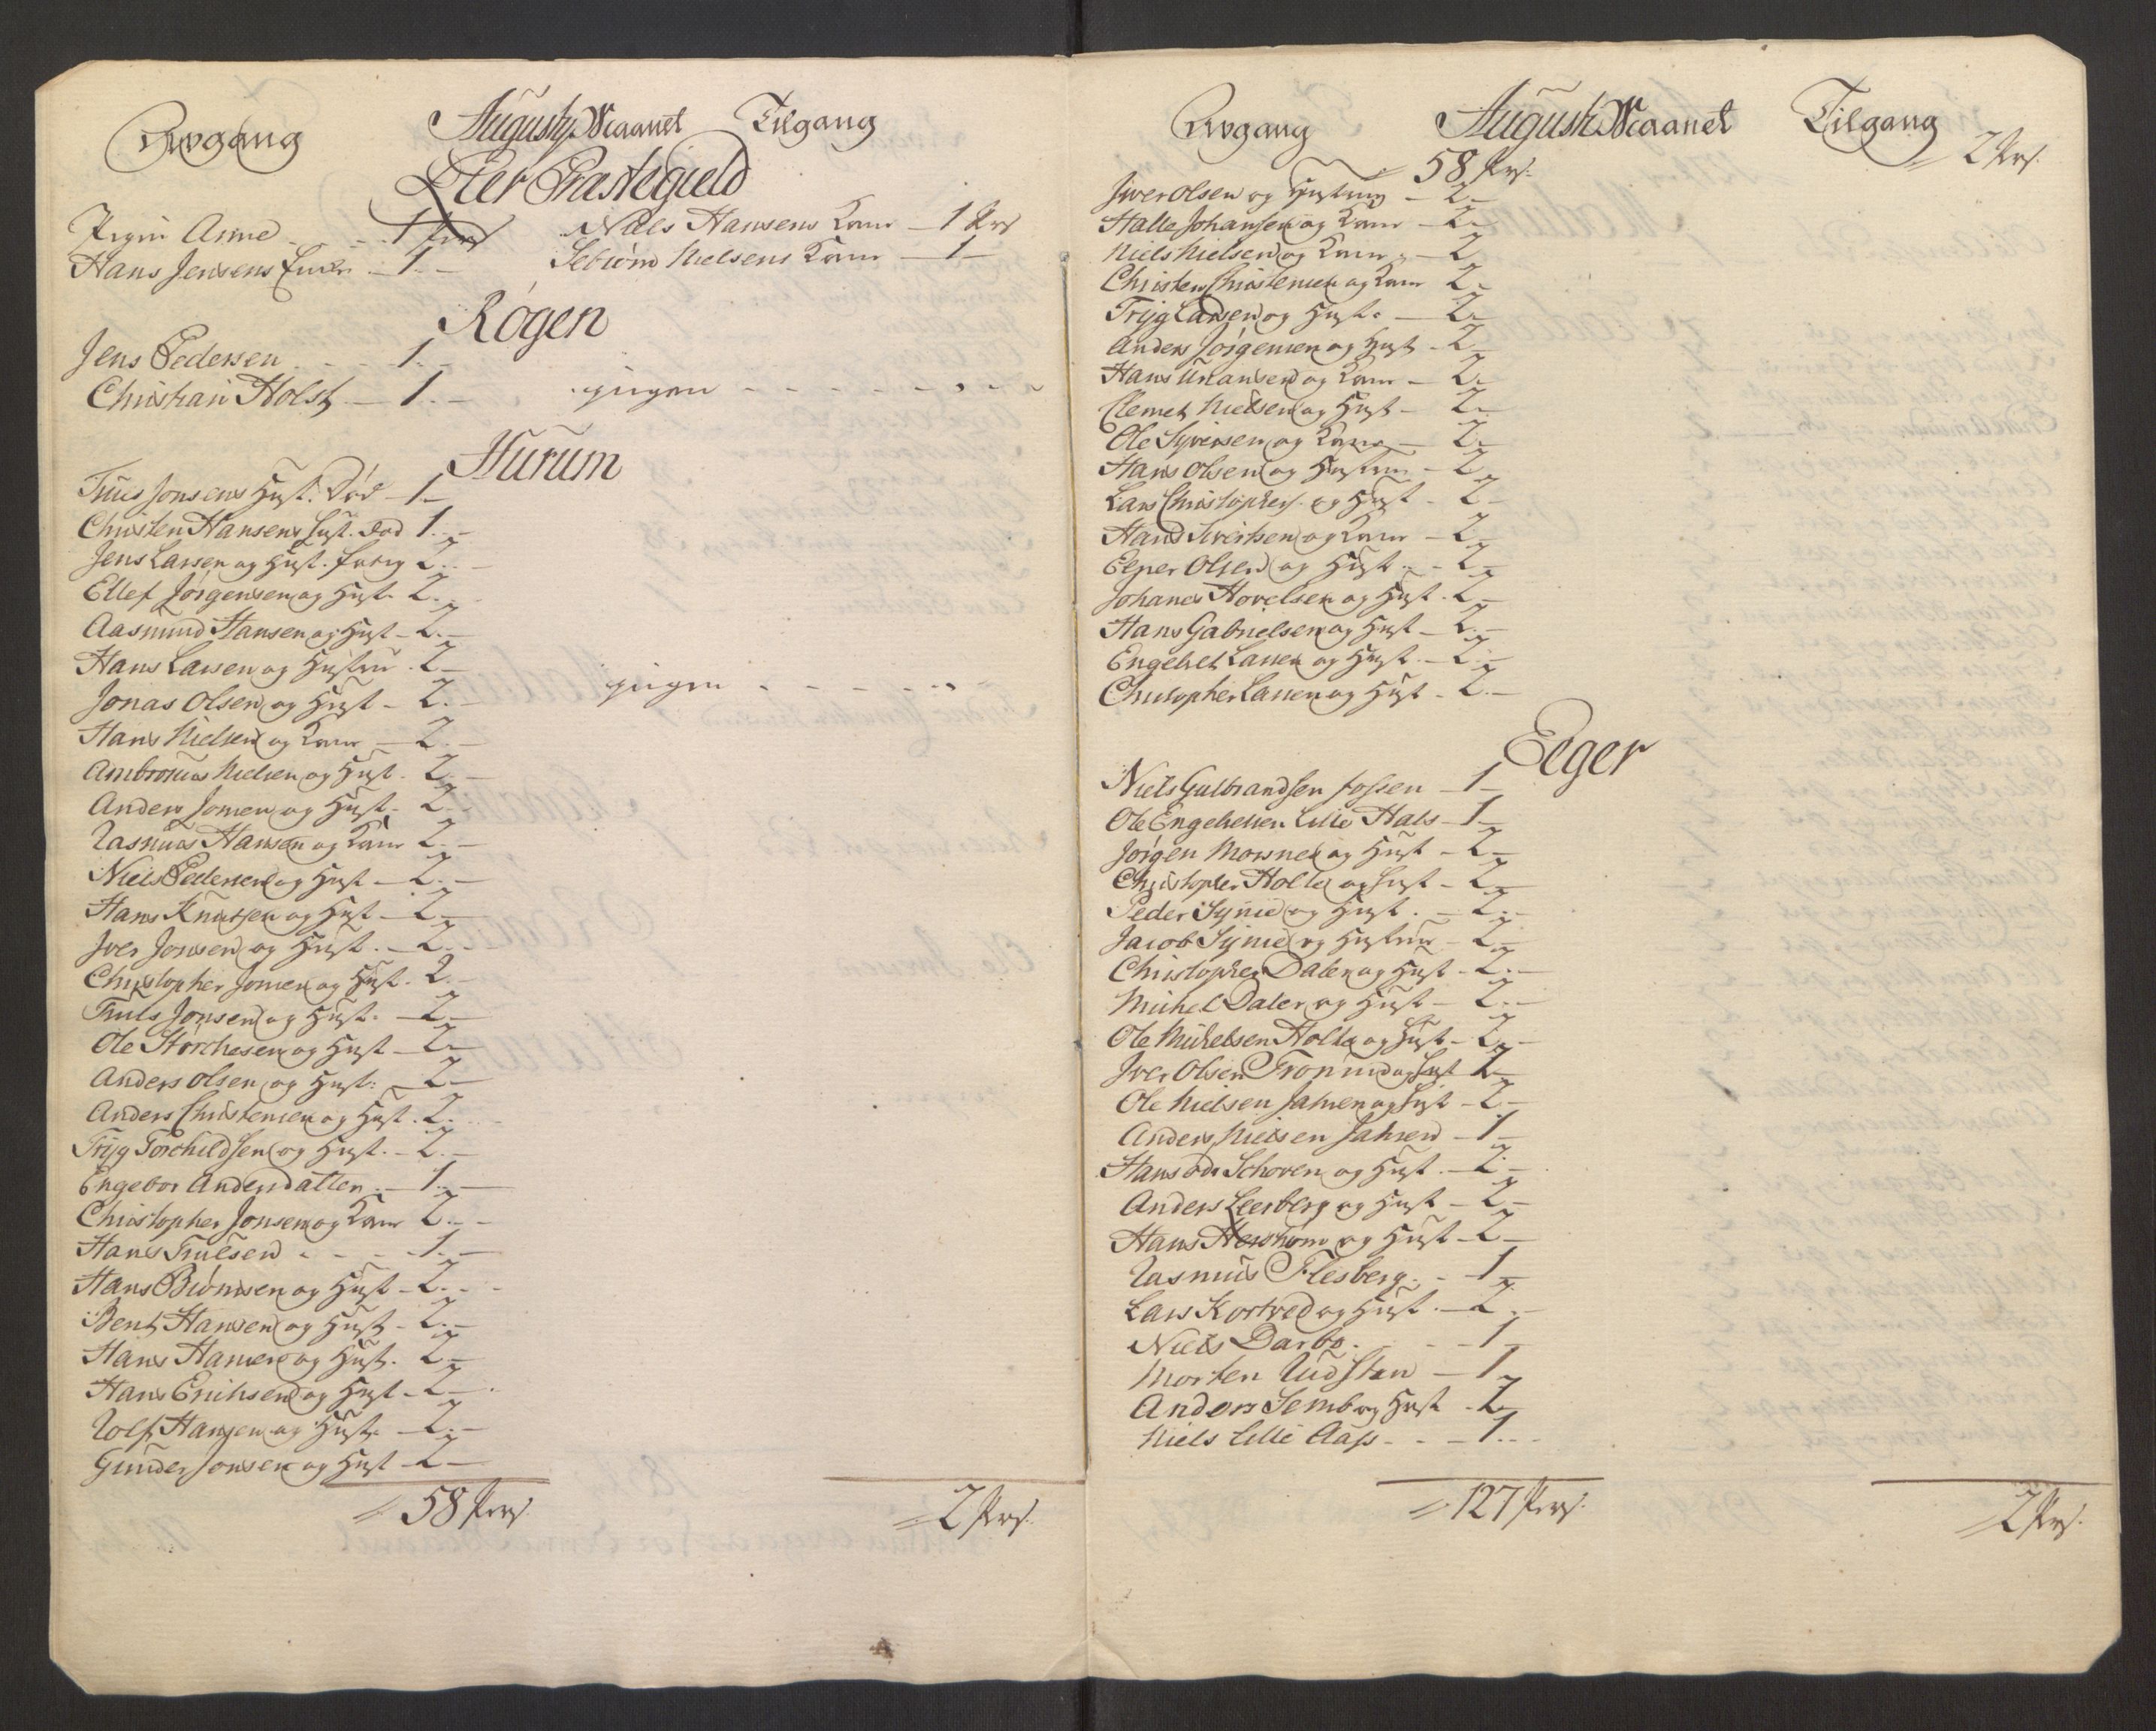 Avgang Augusty Maanet Tilgang
Lier Præstegield
Pigen Anne - - 1 Pers Niels Hansens Kone - 1 Prs
Hans Jensens - 1 - Sebiørn Nielsens Kone - 1 -
Røgen
Jens Pedersen - - 1 -
Christian Holst - 1 - - ingen - - - - - - -
Hurum
Truls Jonsens Hust. død - 1 -
Christen Hansens Hust. død 1 - -
Jens Larsen og Hust. 2 - -
Ellef Jørgensen og Hust. 2 -
Aasmund Hansen og Hust - 2 -
Hans Larsen og Hustru - 2 -
Jonas Olsen og Hust - 2 - - ingen - - - - - - -
Hans Nielsen og Kone - 2 -
Ambrosius Nielsen og Hust - 2 -
Anders Jonsen og Hust - 2 -
Rasmus Hansen og Kone 2 -
Niels Pedersen og Hust - 2 -
Hans Knutsen og Hust - 2 -
Iver Jonsen og Hust. - 2 -
Christopher Jonsen og Hust. 2 -
Truls Jonsen og Hust. - 2 -
Ole Størchesen og Hust - 2 -
Anders Olsen og Hust: - 2 -
Anders Christensen og Hust. 2 -
Tryg Torchildsen og Hust. - 2 -
Engebor Andersdatter - 1 -
Christopher Jonsen og Kone 2 - -
Hans Trulsen - - - 1 -
Hans Biørnsen og Hust - 2 - -
Bent Hansen og Hust - 2 -
Hans Hansen og Hust. 2 -
Hans Erichsen og Hust - 2 - -
Rolf Hansen og Hust. - 2 -
Gunder Jonsen og Hust - 2 -
58 Pers. 2 Prs.
Avgang Augusti Maanet Tilgang
58 Prs. 2 Prs.
Iver Olsen og Hustrue - 2 -
Halle Johansen og Kone - 2 -
Niels Nielsen og Kone - 2
Christen Christensen og Kone 2 -
Tryg Larsen og Hust. - 2 -
Anders Jørgensen og Hust - 2 -
Hans og Kone - 2 -
Clemet Nielsen og Hust - 2 -
Ole Syversen og Kone - 2 -
Hans Olsen og Hustrue - 2 -
Lars Christophers. og Hust - 2 -
Hans Siversen og Kone - 2 -
Olsen og Hust - - 2 -
Johanes Hovelsen og Hust. 2 -
Hans Gabrielsen og Hust - 2 -
Engebret Larsen og Hust - 2 -
Christopher Larsen og Hust - 2 -
Eeger
Niels Gulbrandsen Fossen - 1 -
Ole Engebretsen Lille Hals - 1 -
Jørgen og Hust - 2 -
Christopher Holte og Hust - 2 -
Peder og Hust. - 2 -
Jacob og Hustrue - 2 -
Christopher Dalen og Hust - 2 -
Michel Dalen og Hust - 2 -
Ole Michelsen Holte og Hust - 2 -
Iver Olsen og Hust 2 -
Ole Nielsen Jahren og Hust - 2 -
Anders Nielsen Jahren - 1 -
Hans Schoven og Hust. - 2 -
Anders Leerberg og Hust - 2 -
Hans og Hust - 2 -
Rasmus Flesberg - - 1 -
Lars Kortved og Hust. - 2 -
Niels Darbo - - - - 1 -
Morten - 1 -
Anders Semb og Hust - 2 -
Niels Lille Aass - - - 1 - -
127 Pers. 2 Prs.